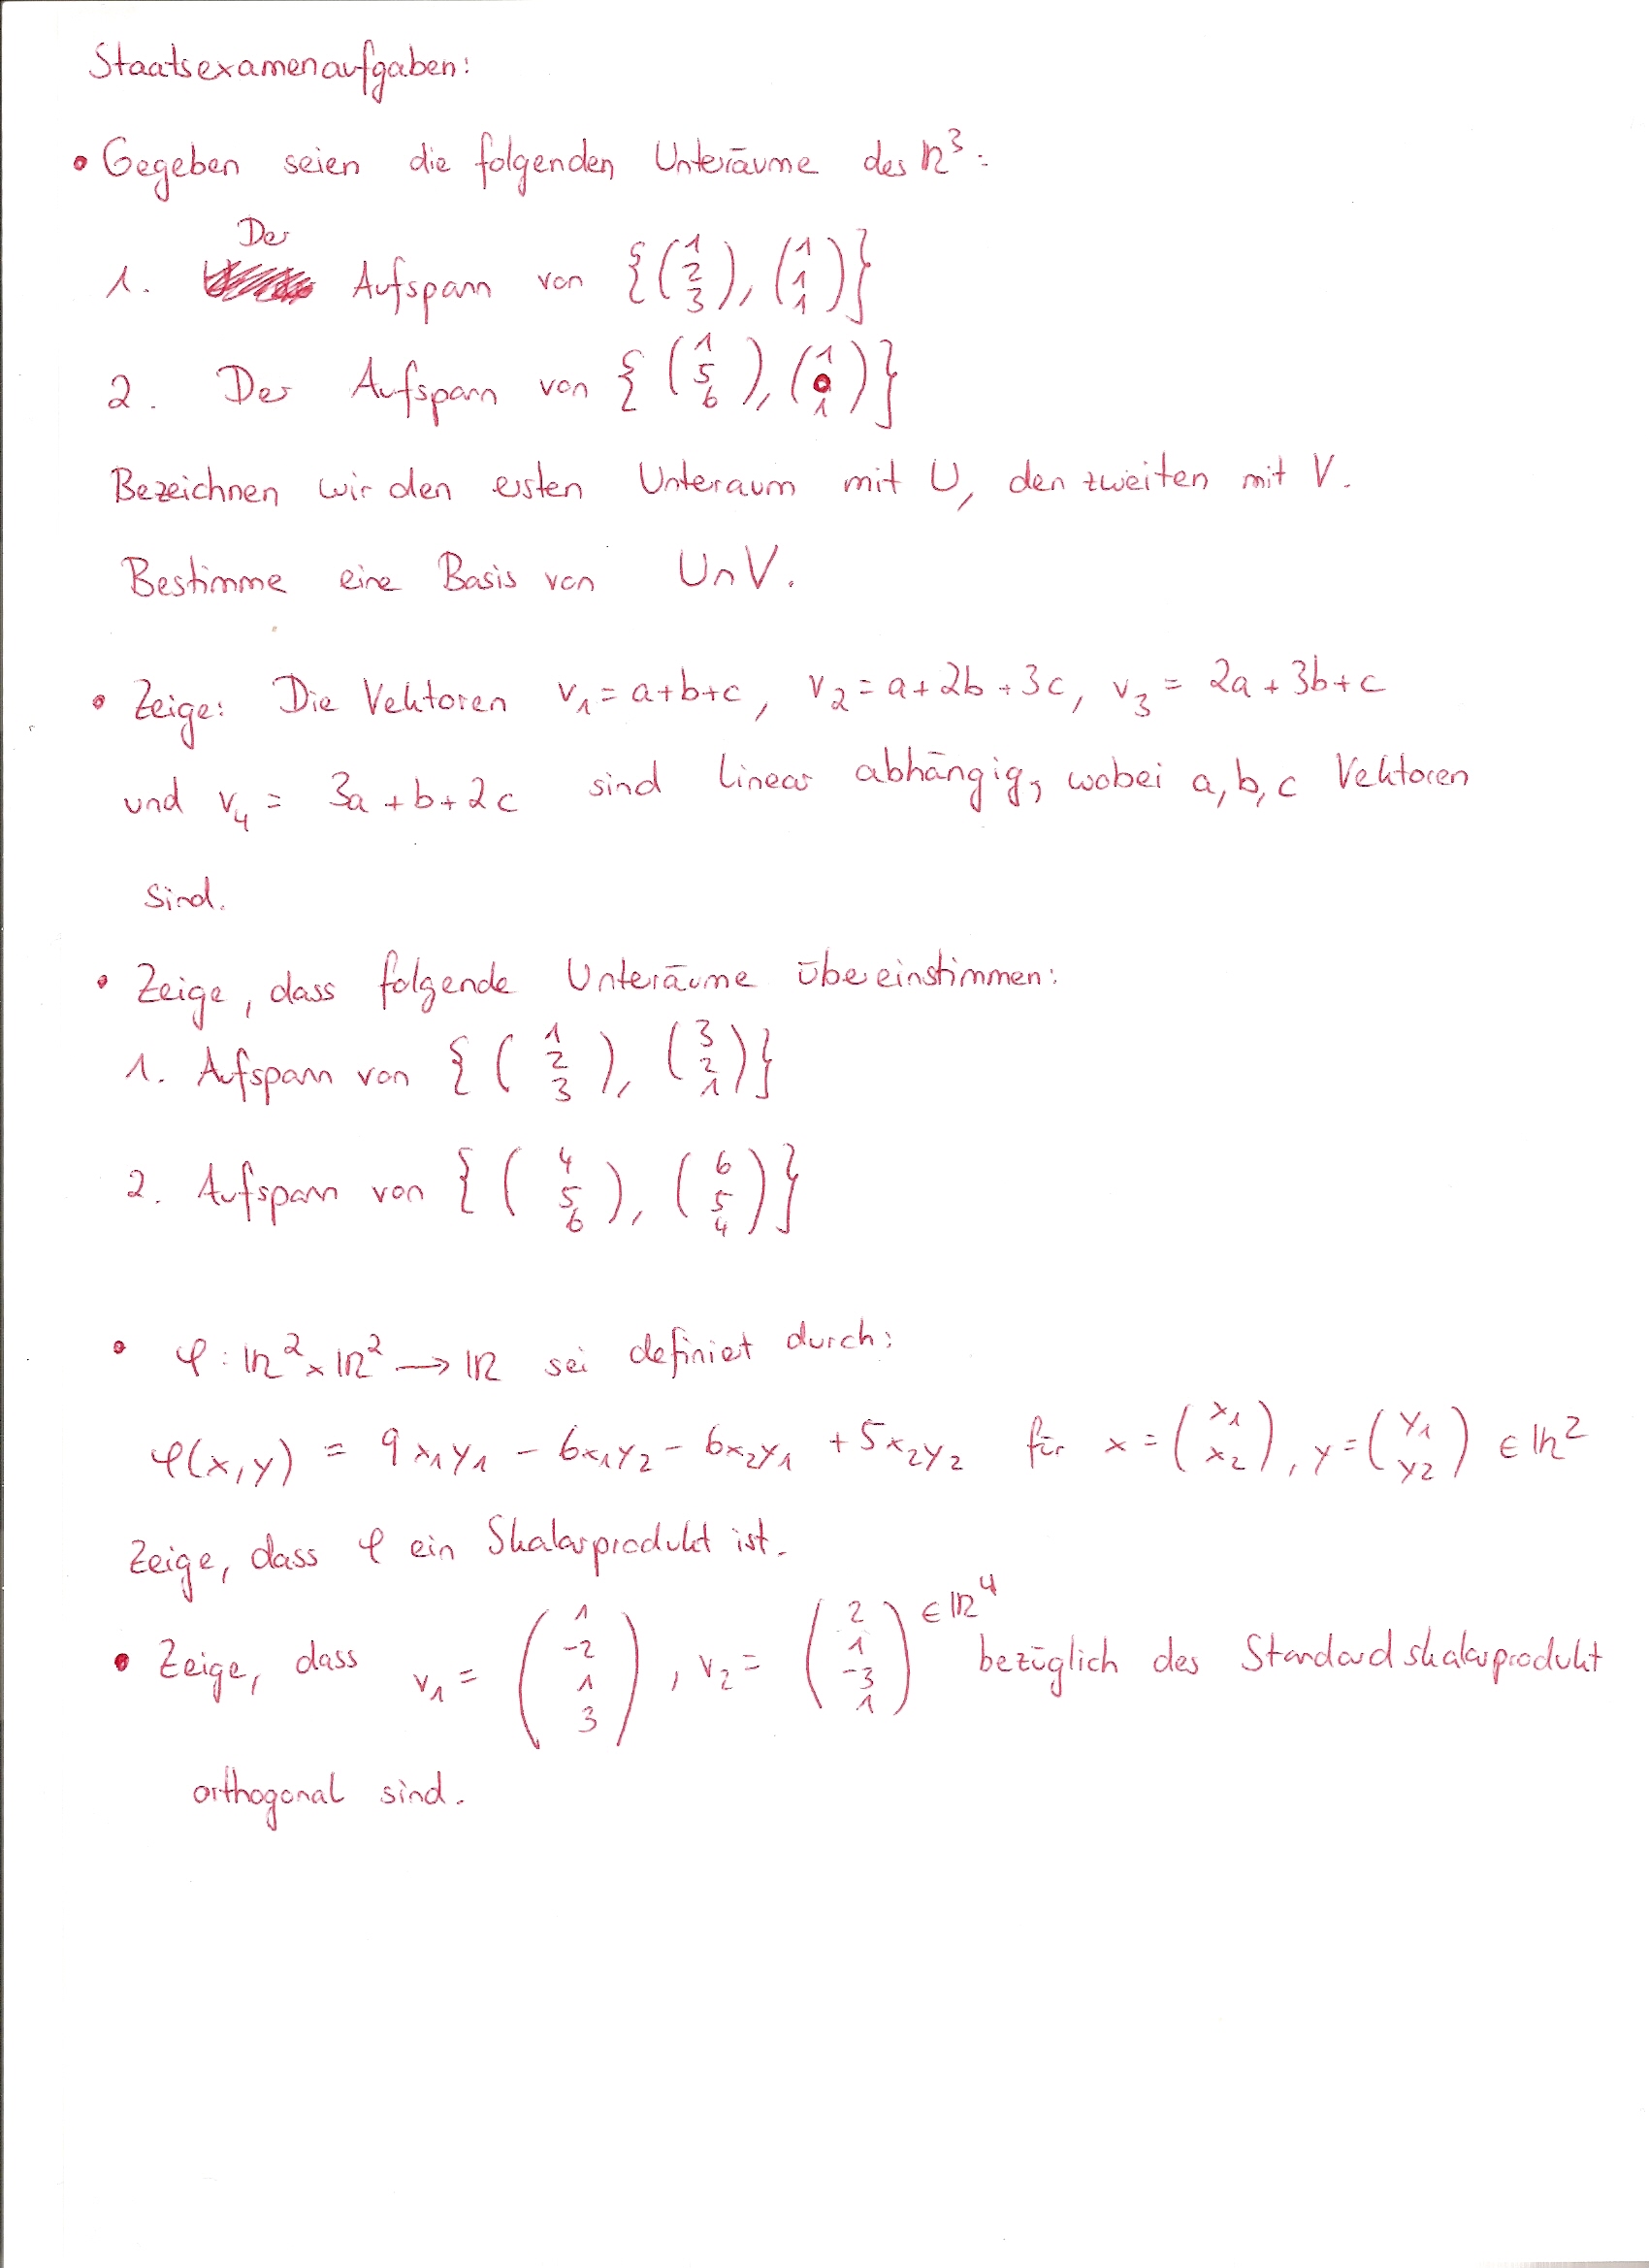 Staatsexamenaufgaben:
• Gegeben seien die folgenden Unteräume des ℝ³:
Der
1. Aufspann von {(1 2 3), (1 1 1)}
2. Der Aufspann von {(1 5 6), (1 0 1)}
Bezeichnen wir den ersten Unteraum mit U, den zweiten mit V.
Bestimme eine Basis von U∩V.
• Zeige: Die Vektoren v₁ = a+b+c, v₂ = a+2b+3c, v₃ = 2a+3b+c
und v₄ = 3a+b+2c sind linear abhängig, wobei a, b, c Vektoren
sind.
• Zeige, dass folgende Unteräume übereinstimmen:
1. Aufspann von {(1 2 3), (3 2 1)}
2. Aufspann von {(4 5 6), (6 5 4)}
• φ: ℝ² × ℝ² → ℝ sei definiert durch:
φ(x,y) = 9x₁y₁ - 6x₁y₂ - 6x₂y₁ + 5x₂y₂ für x = (x₁ x₂), y = (y₁ y₂) ∈ ℝ²
Zeige, dass φ ein Skalarprodukt ist.
• Zeige, dass v₁ = (1 -2 1 3), v₂ = (2 1 -3 1) ∈ ℝ⁴ bezüglich des Standardskalarprodukt
orthogonal sind.